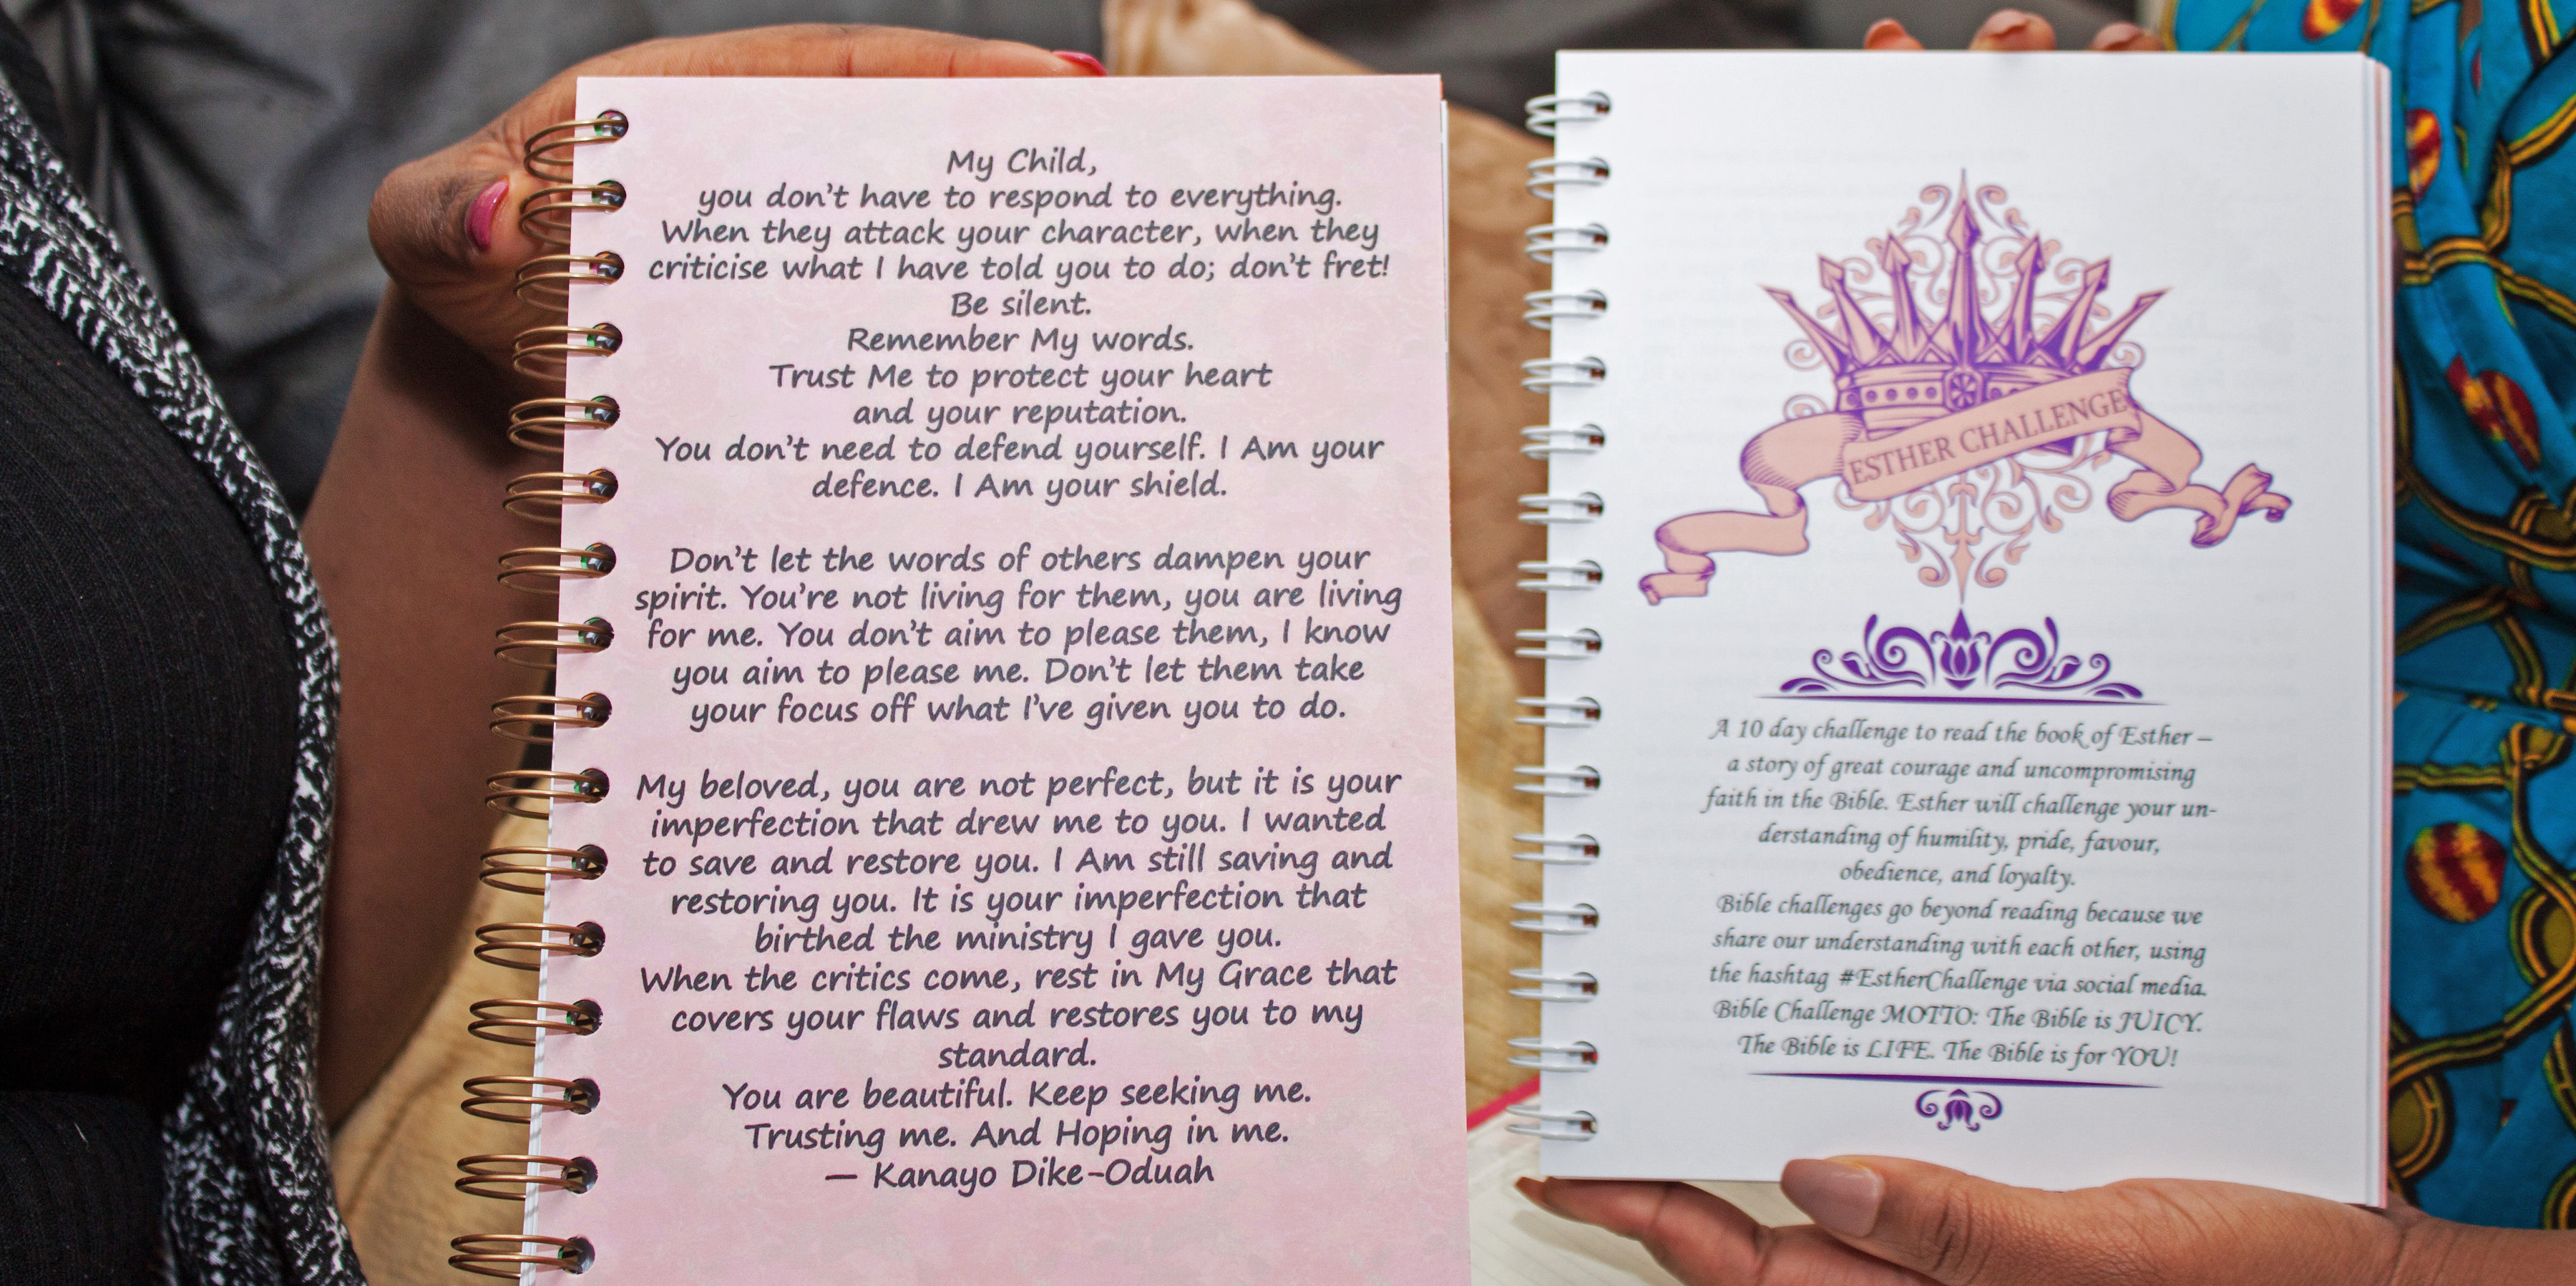 My Child,
you don't have to respond to everything.
When they attack your character, when they
criticise what I have told you to do; don't fret!
Be silent.
Remember My words.
Trust Me to protect your heart
and your reputation.
You don't need to defend yourself. I Am your
defence. I Am your shield.
Don't let the words of others dampen your
spirit. You're not living for them, you are living
for me. You don't aim to please them, I know
you aim to please me. Don't let them take
your focus off what I've given you to do.
My beloved, you are not perfect, but it is your
imperfection that drew me to you. I wanted
to save and restore you. I Am still saving and
restoring you. It is your imperfection that
birthed the ministry I gave you.
When the critics come, rest in My Grace that
covers your flaws and restores you to my
standard.
You are beautiful. Keep seeking me.
Trusting me. And Hoping in me.
— Kanayo Dike-Oduah
ESTHER CHALLENGE
A 10 day challenge to read the book of Esther –
a story of great courage and uncompromising
faith in the Bible. Esther will challenge your un-
derstanding of humility, pride, favour,
obedience, and loyalty.
Bible challenges go beyond reading because we
share our understanding with each other, using
the hashtag #EstherChallenge via social media.
Bible Challenge MOTTO: The Bible is JUICY.
The Bible is LIFE. The Bible is for YOU!